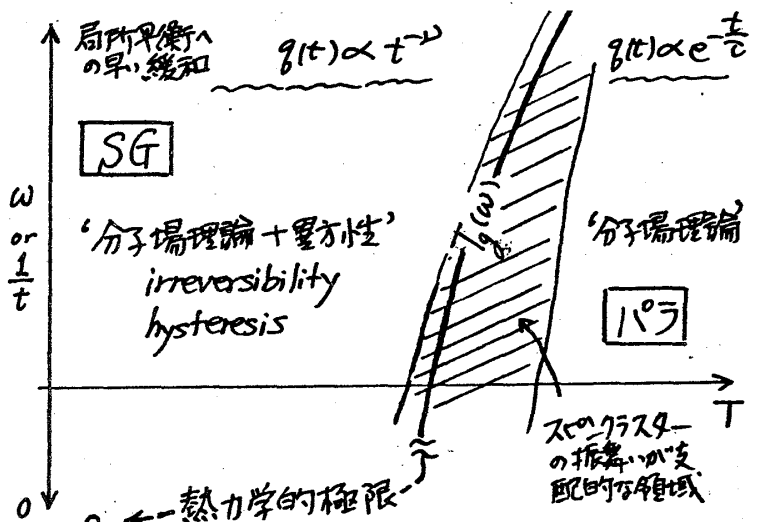 局所平衡へ
の早い緩和
q(t)∝t^-ν
q(t)∝e^-t/τ
SG
ω
or
1/t
Tg(ω)
'分子場理論+異方性'
irreversibility
hysteresis
'分子場理論'
パラ
T
スピンクラスター
の振舞いが支
配的な領域
0
熱力学的極限